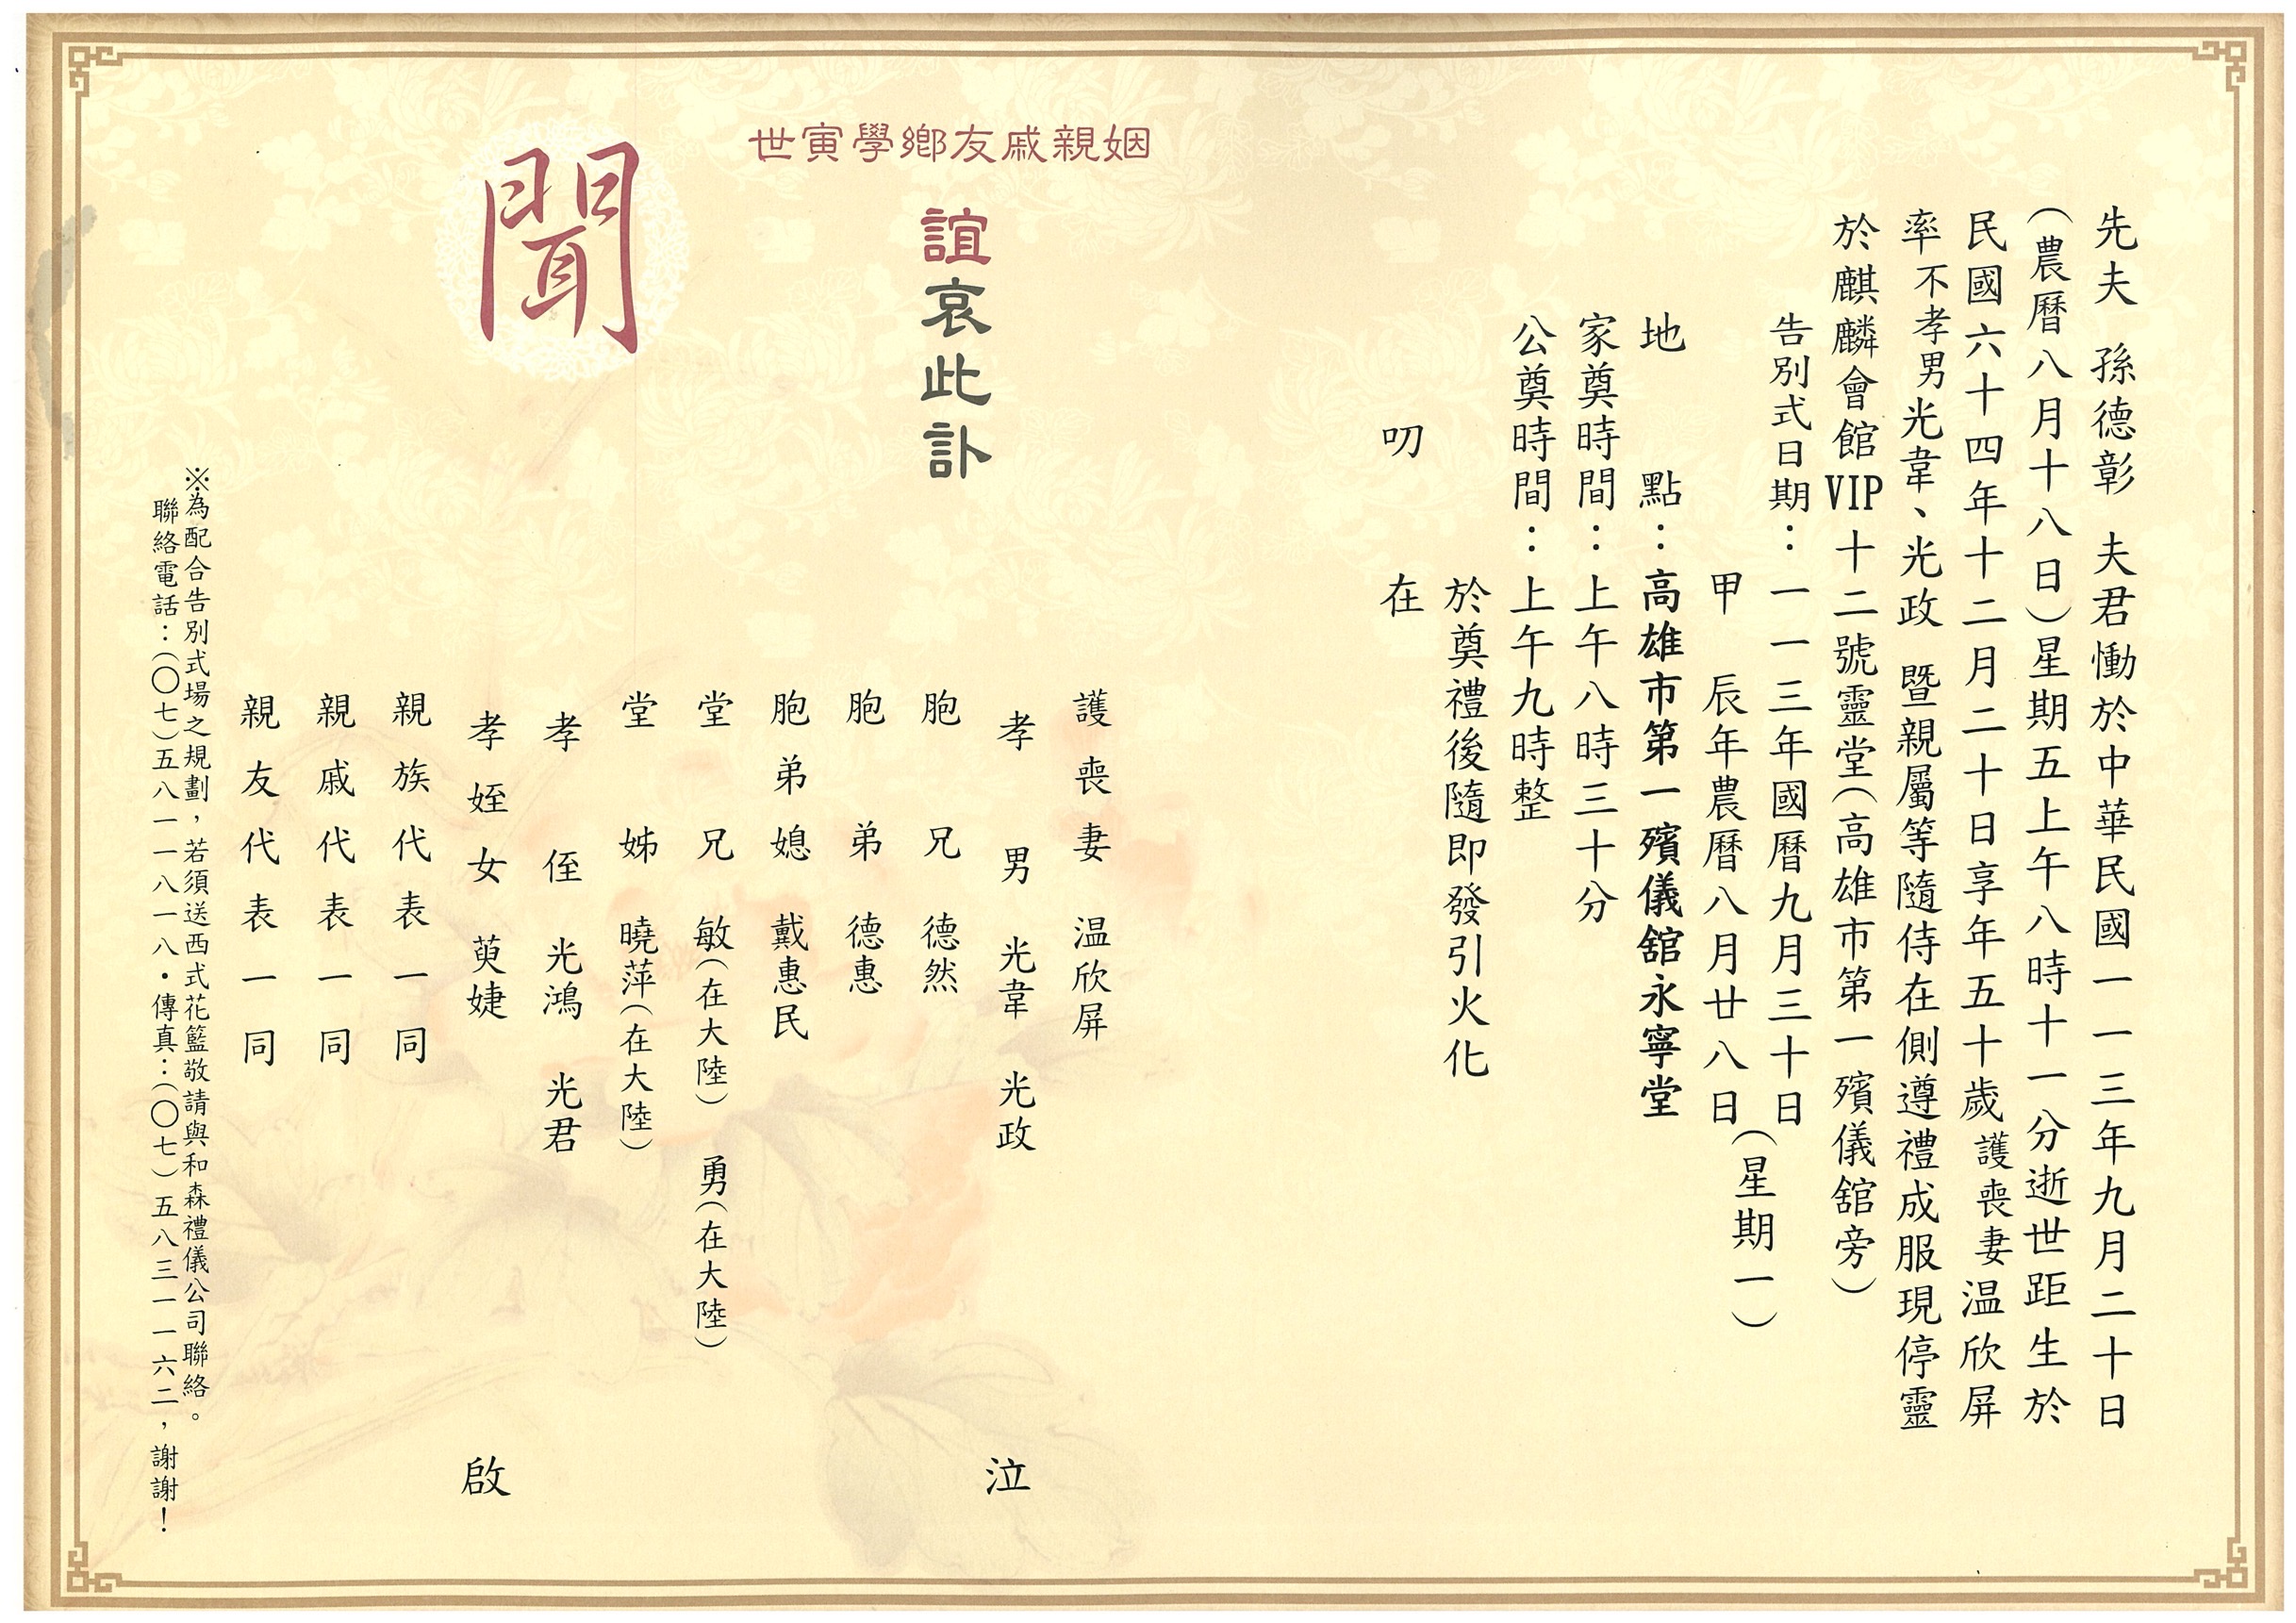 先夫 孫德彰 夫君慟於中華民國一一三年九月二十日
（農曆八月十八日）星期五上午八時十一分逝世距生於
民國六十四年十二月二十日享年五十歲護喪妻温欣屏
率不孝男光韋、光政 暨親屬等隨侍在側遵禮成服現停靈
於麒麟會館VIP十二號靈堂（高雄市第一殯儀舘旁）
告別式日期：一一三年國曆九月三十日
甲辰年農曆八月廿八日
（星期一）
地點：高雄市第一殯儀舘永寧堂
家奠時間：上午八時三十分
公奠時間：上午九時整
於奠禮後隨即發引火化
叨在
姻親戚友鄉學寅世
誼哀此訃
聞
護喪妻 温欣屏
孝男 光韋 光政
泣
胞兄 德然
胞弟 德惠
胞弟媳 戴惠民
堂兄 敏（在大陸） 勇（在大陸）
堂姊 曉萍（在大陸）
孝侄 光鴻 光君
孝姪女 萸婕
啟
親族代表一同
親戚代表一同
親友代表一同
※為配合告別式場之規劃，若須送西式花籃敬請與和森禮儀公司聯絡。
聯絡電話：（〇七）五八一一八一八・傳真：（〇七）五八三一一六二，謝謝！